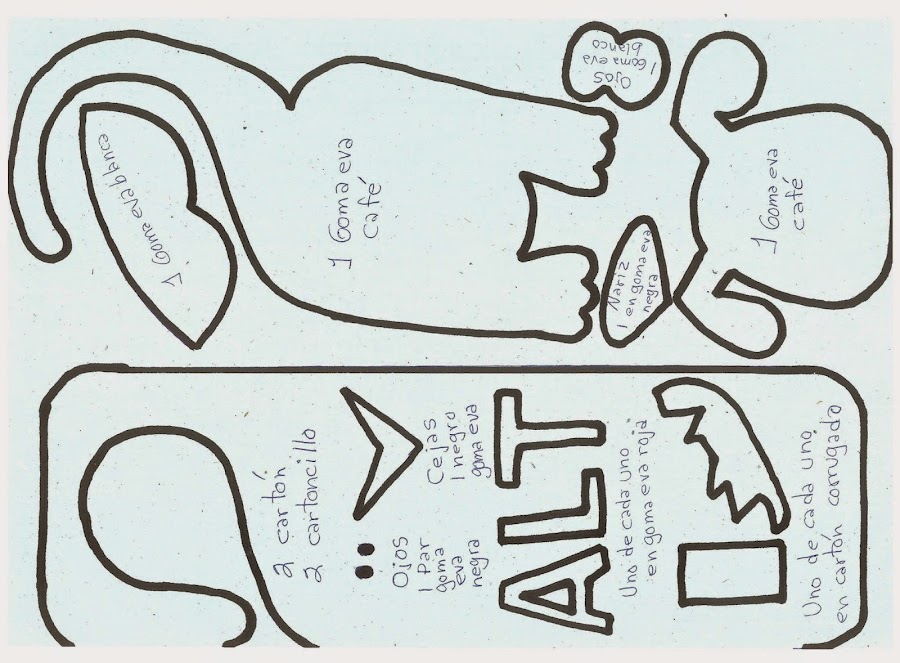 1 Goma eva blanco
1 Goma eva
café
Ojos
1 Goma eva
blanco
Nariz
1 en goma eva
negra
1 Goma eva
café
2 cartón
2 cartoncillo
Ojos
1 Par
goma
eva
negra
Cejas
1 negro
goma eva
ALT
Uno de cada uno
en goma eva roja
Uno de cada uno
en cartón corrugado